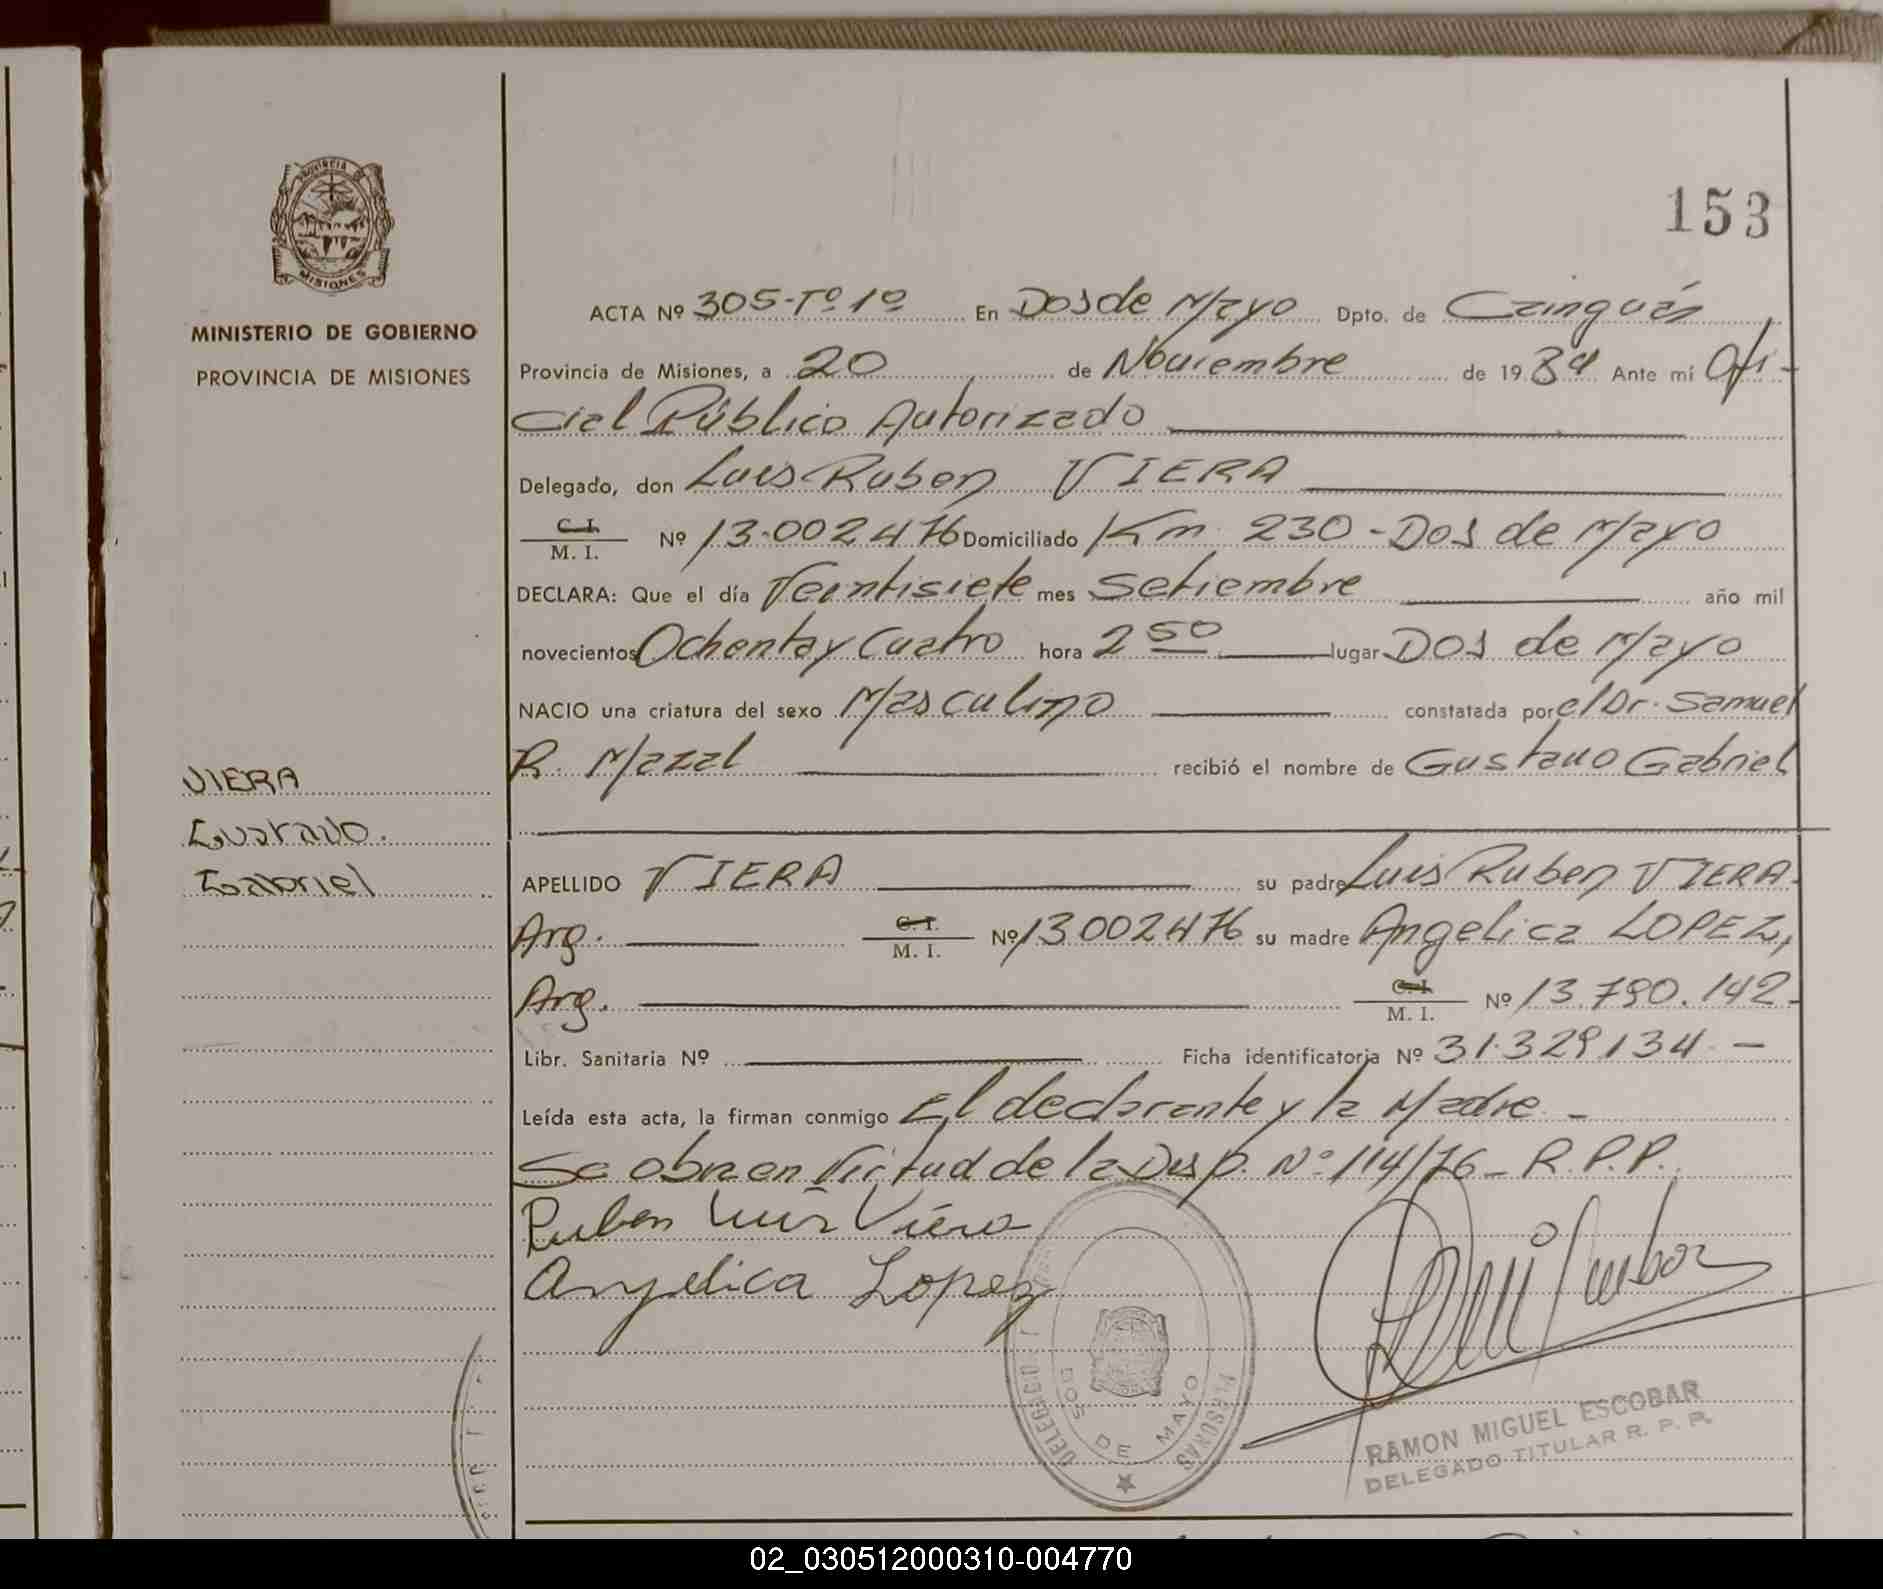 153
PROVINCIA DE
MISIONES
MINISTERIO DE GOBIERNO
PROVINCIA DE MISIONES
ACTA Nº 305-Tº 1º En Dos de Mayo Dpto. de Cainguás
Provincia de Misiones, a 20 de Noviembre de 1984 Ante mí Ofi-
cial Público Autorizado
Delegado, don Luis Ruben VIERA
C. I.
M. I. Nº 13.002476 Domiciliado Km 230 - Dos de Mayo
DECLARA: Que el día Veintisiete mes Setiembre año mil
novecientos Ochenta y Cuatro hora 2 50 lugar Dos de Mayo
NACIO una criatura del sexo Masculino constatada por el Dr. Samuel
R. Mazal recibió el nombre de Gustavo Gabriel
VIERA
Gustavo.
Gabriel
APELLIDO VIERA su padre Luis Ruben VIERA.
Arg. C. I. M. I. Nº 13.002476 su madre Angelica LOPEZ,
Arg. C. I. M. I. Nº 13.790.142.
Libr. Sanitaria Nº Ficha identificatoria Nº 31.329134 -
Leída esta acta, la firman conmigo El declarante y la Madre -
Se obra en Virtud de la Disp. Nº 114/76 - R.P.P.
Ruben Luis Viera
Angelica Lopez
DOS DE MAYO
RAMON MIGUEL ESCOBAR
DELEGADO TITULAR R. P. P.
02_030512000310-004770